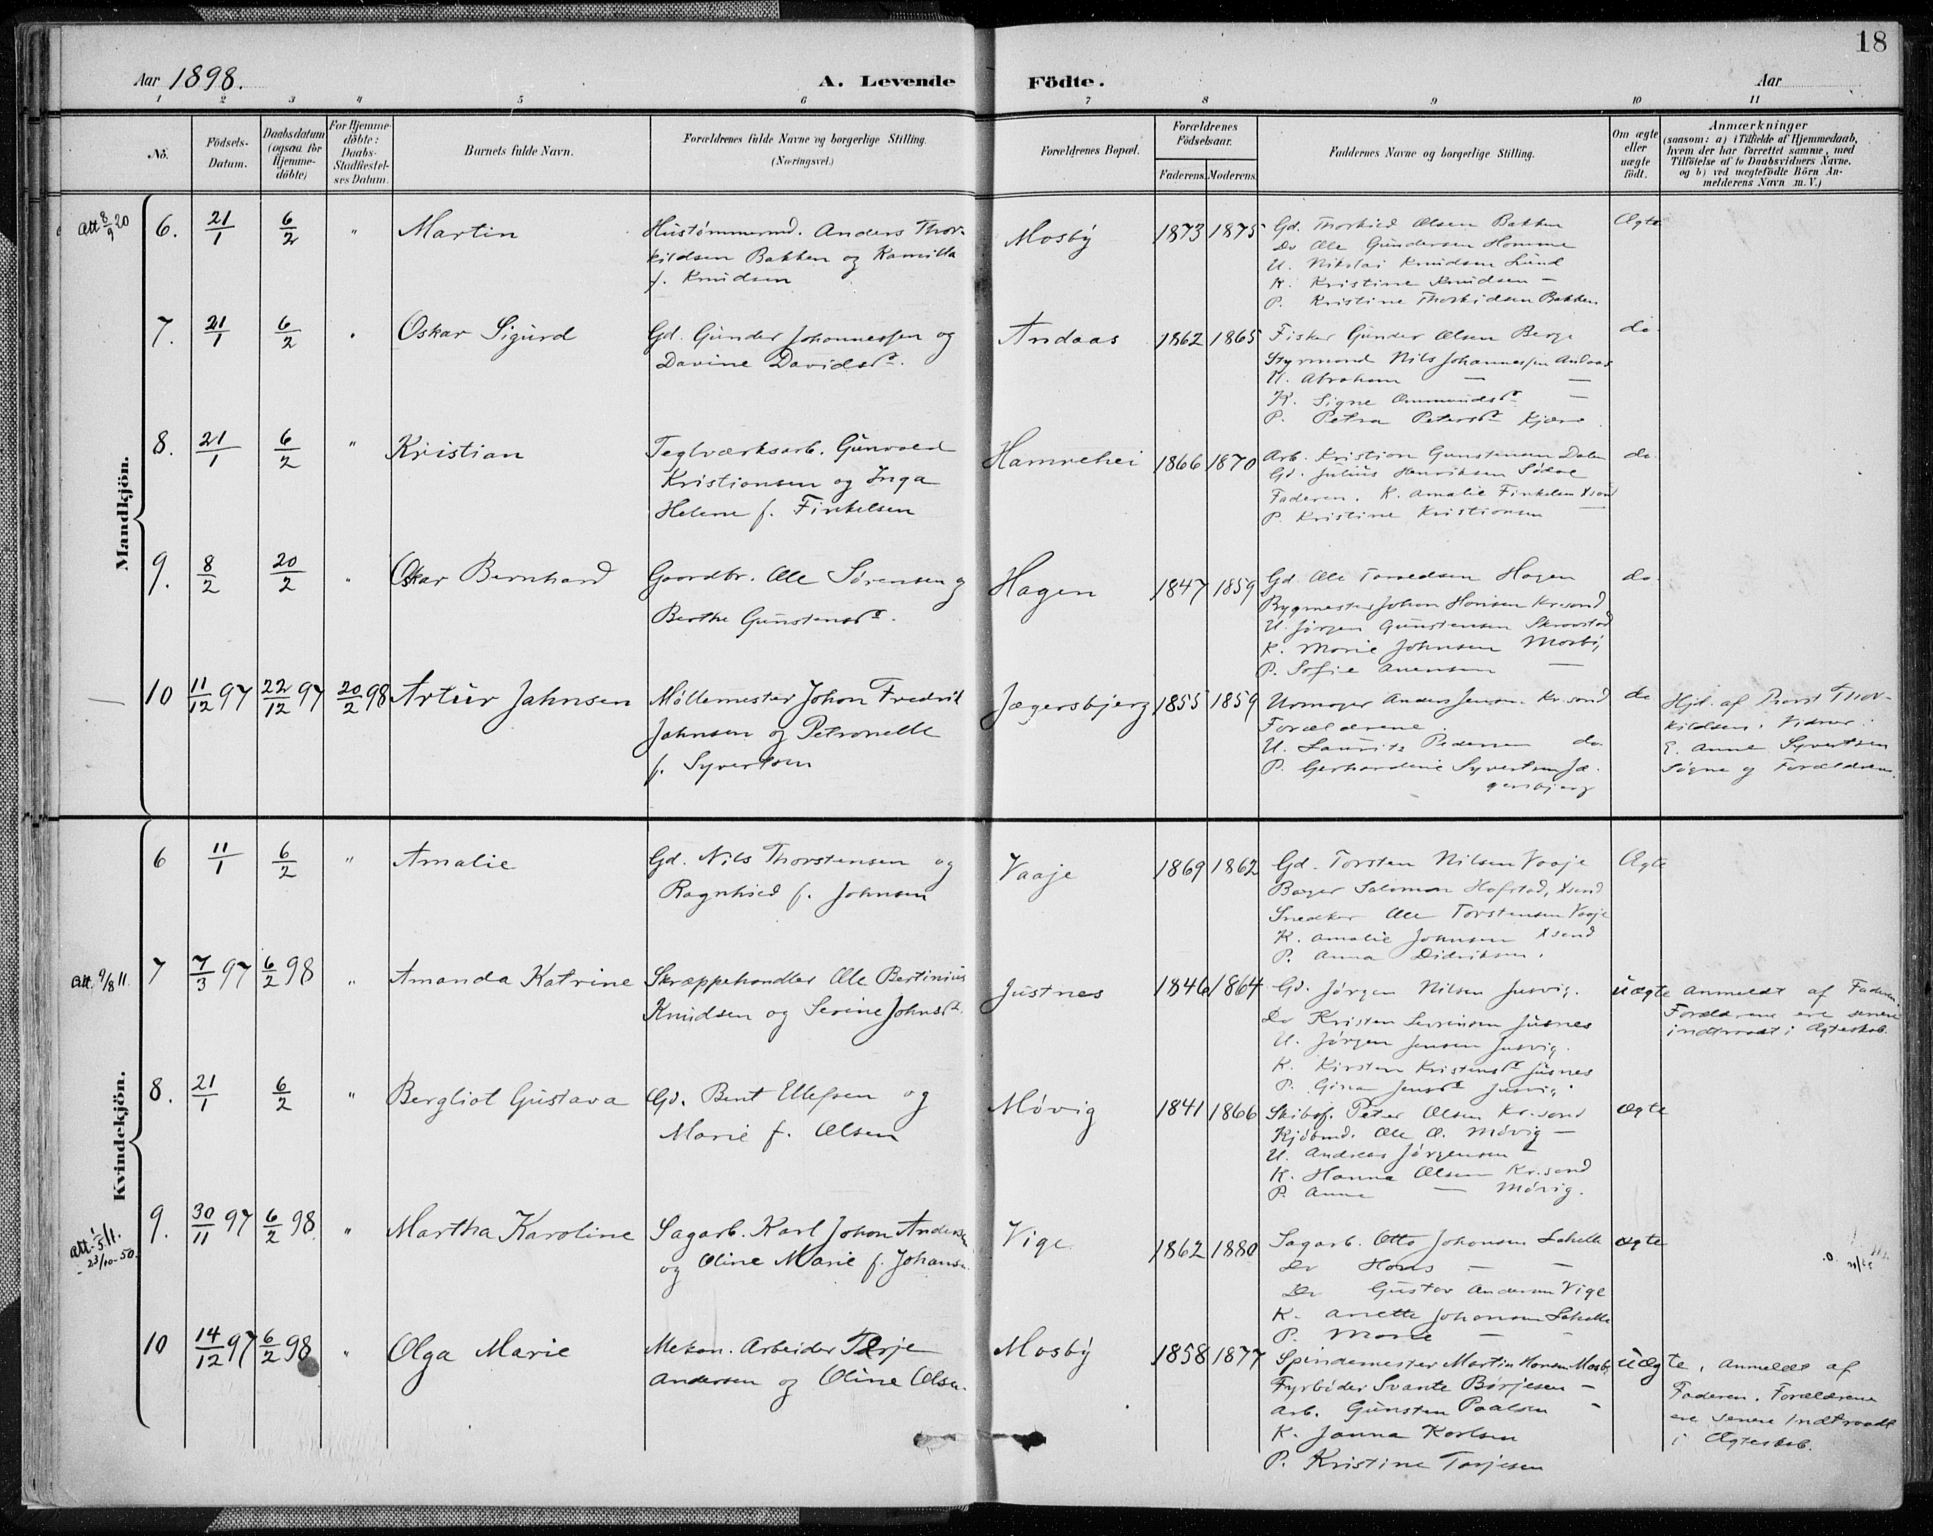 18
Aar 1898. A. Levende Födte. Aar
1 2 3 4 5 6 7 8 9 10 11
Nö.
Födsels-Datum.
Daabsdatum (ogsaa for Hjemme-döbte)
For Hjemme-döbte: Daabs-Stadfæstel-ses Datum.
Barnets fulde Navn.
Forældrenes fulde Navne og borgerlige Stilling.
(Næringsvei.)
Forældrenes Bopæl.
Forældrenes Födselsaar.
Faderens. Moderens.
Faddernes Navne og borgerlige Stilling.
Om ægte eller uægte födt.
Anmærkninger
(saasom: a) i Tilfælde af Hjemmedaab,
hvem der har forrettet samme, med
Tilföielse af to Daabsvidners Navne.
og b) ved uægtefödte Börn An-
melderens Navn m. V.)
Mandkjön.
Att 8/9 20
6. 21/1 6/2 " Martin
Hustømmermd. Anders Thor-
kildsen Bakken og Kamilla
f. Knudsen
Mosby 1873 1875
Gd. Thorkild Olsen Bakken
Do Ole Gundersen Homme
U. Nikolai Knudsen Lund
K. Kristine Knudsen —
P. Kristine Thorkidsen Bakken
Ægte
7. 21/1 6/2 " Oskar Sigurd
Gd. Gunder Johannessen og
Davine Davidsdr.
Andaas 1862 1865
Fisker Gunder Olsen Berge
Styrmand Nils Johannessen Andaas
U. Abraham — —
K. Signe Ommundsdr —
P. Petra Petersdr Kjære
do
8. 21/1 6/2 " Kristian
Teglværksarb. Gunvald
Kristiansen og Inga
Helene f. Finkelsen
Hamrehei 1866 1870
Arb. Kristian Gunstensen Dalen
Gd. Julius Henriksen
Faderen. K. Amalie Finkelsen Xsand
P. Kristine Kristiansen —
do.
9. 8/2 20/2 " Oskar Bernhard
Gaardbr. Ole Sørensen og
Berthe Gunstensdr.
Hagen 1847 1859
Gd Ole Hagen
Bygmester Johan Hansen Kr.sand
U. Jørgen Gunstensen
K. Marie Johnsen Mosby
P. Sofie —
do.
— 10 11/12 97 22/12 97 20/2 98 Artur Jahnsen
Møllemester Johan Fredrik
Jahnsen og Petronelle
f. Syvertsen
Jægersbjerg 1855 1859
Urmager Anders Jensen Kr.sand
Forældrene.
U. Lauritz Pedersen do.
P. Gerhardine Syvertsen Jæ-
gersbjerg
do
Hjd. af Provst Thor-
kildsen. Vidner:
E. Anne Syvertsen
Søgne og Forældrene.
Kvindekjön.
6 11/1 6/2 " Amalie
Gd. Nils Thorstensen og
Ragnhild f. Johnsen
Vaaje 1869 1862
Gd. Torsten Nilsen Vaaje
Bager Salomon Hofstad, Xsand
Snedker Ole Torstensen Vaaje
K. Amalie Johnsen Xsand
P. Anna Didriksen.
Ægte
Att. 9/8 11.
7 7/3 97 6/2 98 " Amanda Katrine
Skræppehandler Ole Bertinius
Knudsen og Serine Johnsdr.
Justnes 1846 1864
Gd. Jørgen Nilsen Jusvig.
Do Kristen Sevrinsen Jusnes
U. Jørgen Jensen Jusvig.
K. Kirsten Kristensdr Jusnes
P. Gina Jensdr Jusvig.
uægte
Anmeldt af Faderen.
Forældrene ere senere
indtraadt i Ægteskab.
8. 21/1 6/2 " Bergliot Gustava
Gd. Bent Ellefsen og
Marie f. Olsen
Møvig 1841 1866
Skibsf. Peter Olsen Kr.sand
Kjøbmd. Ole O. Møvig —
U. Andreas Jørgensen —
K. Hanna Olsen Kr.sand
P. Anna — Møvig.
ægte
Att. 1/5 11.
- 23/10-50.
9. 30/11 97 6/2 98. " Martha Karoline
Sagarb. Karl Johan Andersen
og Oline Marie f. Johansen
Vige 1862 1880
Sagarb. Otto Johansen Lahelle
Do Hans — —
Do Gustav Andersen Vige
K. Anette Johansen Lahelle
P. Marie — —
ægte
10 14/12 97 6/2 98 " Olga Marie
Mekan. Arbeider Terje
Andersen og Oline Olsen.
Mosby 1858 1877
Spindemester Martin Hansen Mosby
Fyrbøder Svante Børjesen —
Arb. Gunsten Paalsen —
K. Janna Karlsen
P. Kristine Tarjesen
uægte.
Anmeldt af
Faderen. Forældrene
ere senere indtraadt
i Ægteskab.